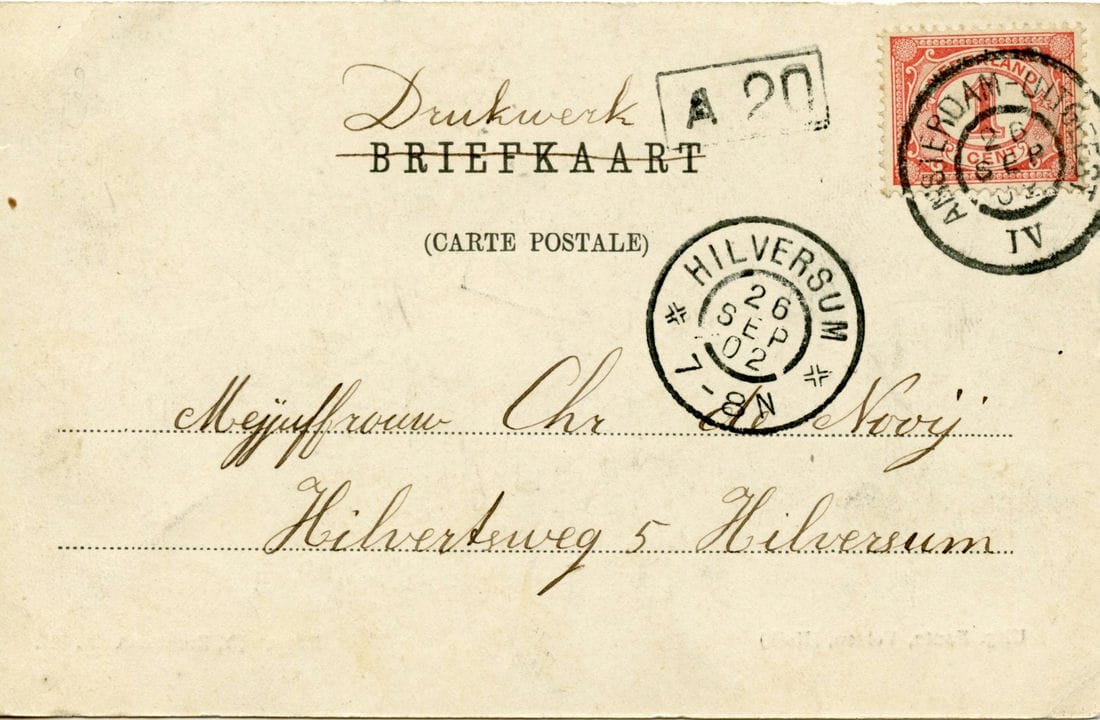 Drukwerk
A 20
BRIEFKAART
(CARTE POSTALE)
NEDERLAND
1
CENT
AMSTERDAM-UITGEEST
26
SEP
02
IV
HILVERSUM
26
SEP
02
7-8N
Mejuffrouw Chr de Nooij
Hilvertsweg 5 Hilversum